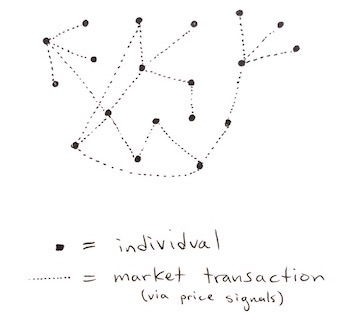 = individual
= market transaction
(via price signals)